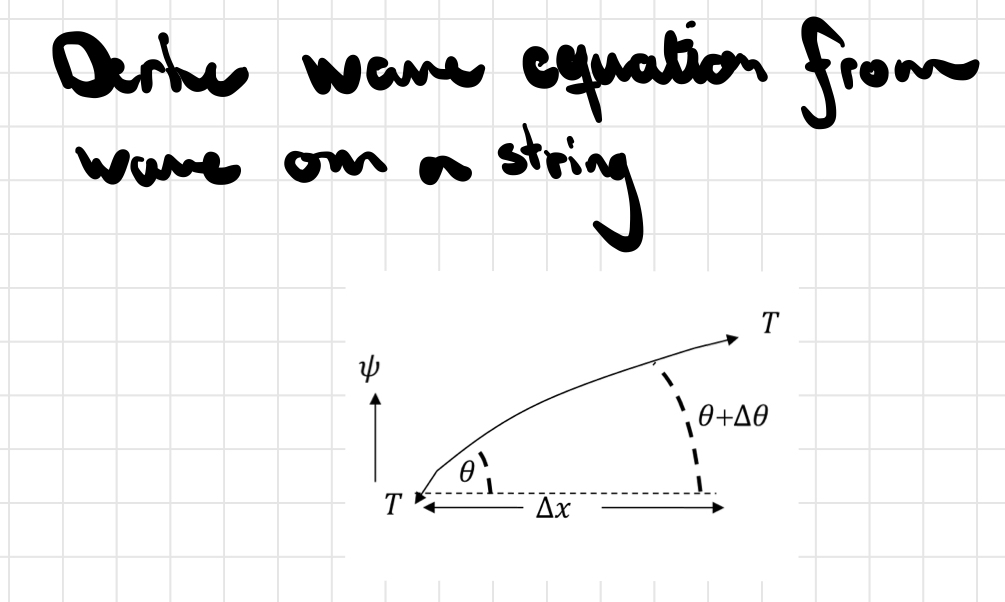 Derive wave equation from
wave on a string
T
ψ
θ+Δθ
θ
T
Δx